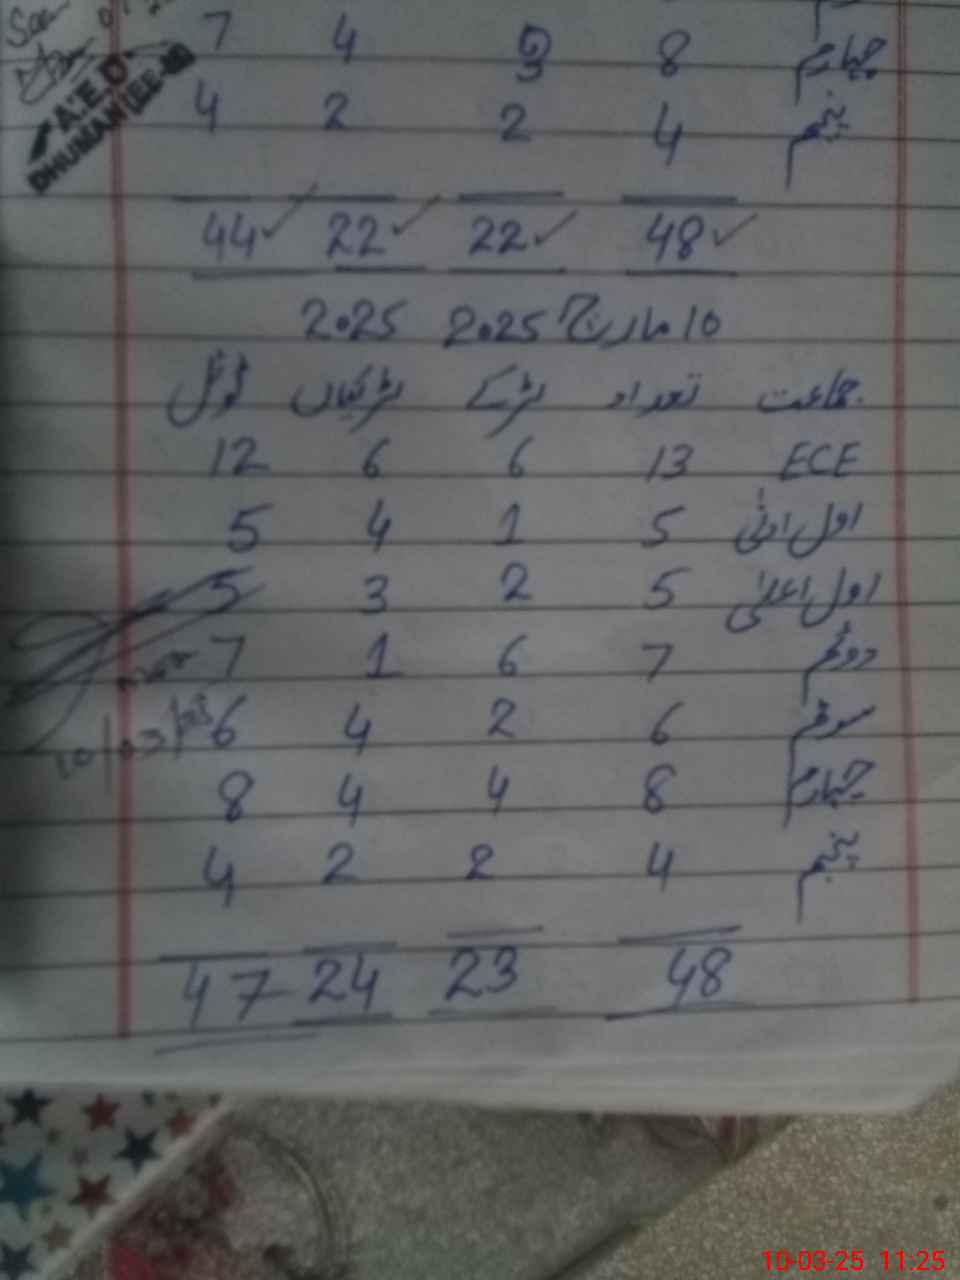 چہارم 8 3 4 7
A.E.O
DHUMAN (EE-M)
پنجم 4 2 2 4
48 22 22 44
10 مارچ 2025 2025
جماعت تعداد لڑکے لڑکیاں ٹوٹل
ECE 13 6 6 12
اول ادنیٰ 5 1 4 5
اول اعلیٰ 5 2 3 5
دوئم 7 6 1 7
سوئم 6 2 4 6
10/03/25
چہارم 8 4 4 8
پنجم 4 2 2 4
48 23 24 47
10-03-25 11:25